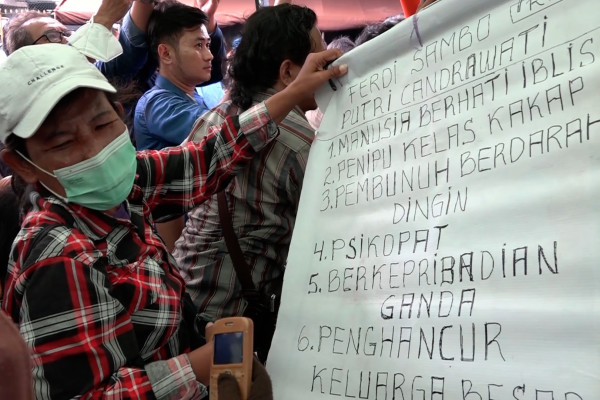 CHALLENGE
FERDI SAMBO
PUTRI CANDRAWATI
1. MANUSIA BERHATI IBLIS
2. PENIPU KELAS KAKAP
3. PEMBUNUH BERDARAH
DINGIN
4. PSIKOPAT
5. BERKEPRIBADIAN
GANDA
6. PENGHANCUR
KELUARGA BESAR